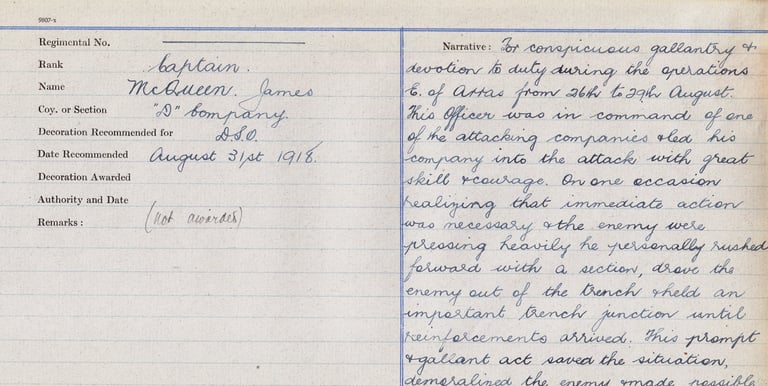 9807-x
Regimental No.
Rank Captain.
Name McQueen. James
Coy. or Section "D" Company.
Decoration Recommended for D.S.O.
Date Recommended August 31st 1918.
Decoration Awarded
Authority and Date
Remarks: (not awarded)
Narrative: For conspicuous gallantry &
devotion to duty during the operations
E. of Arras from 26th to 29th August.
This Officer was in command of one
of the attacking companies & led his
company into the attack with great
skill & courage. On one occasion
realizing that immediate action
was necessary & the enemy were
pressing heavily he personally rushed
forward with a section, drove the
enemy out of the trench & held an
important trench junction until
reinforcements arrived. This prompt
& gallant act saved the situation,
demoralized the enemy & made possible